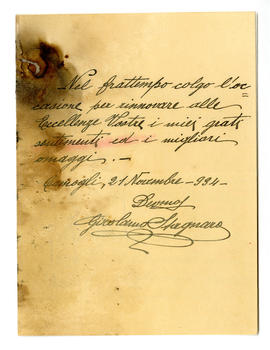 Nel frattempo colgo l'oc
casione per rinnovare alle
Eccellenze Vostre i miei grati
sentimenti ed i migliori
omaggi. —
Camogli, 21 Novembre - 934 -
Devmo
Girolamo Stagnaro